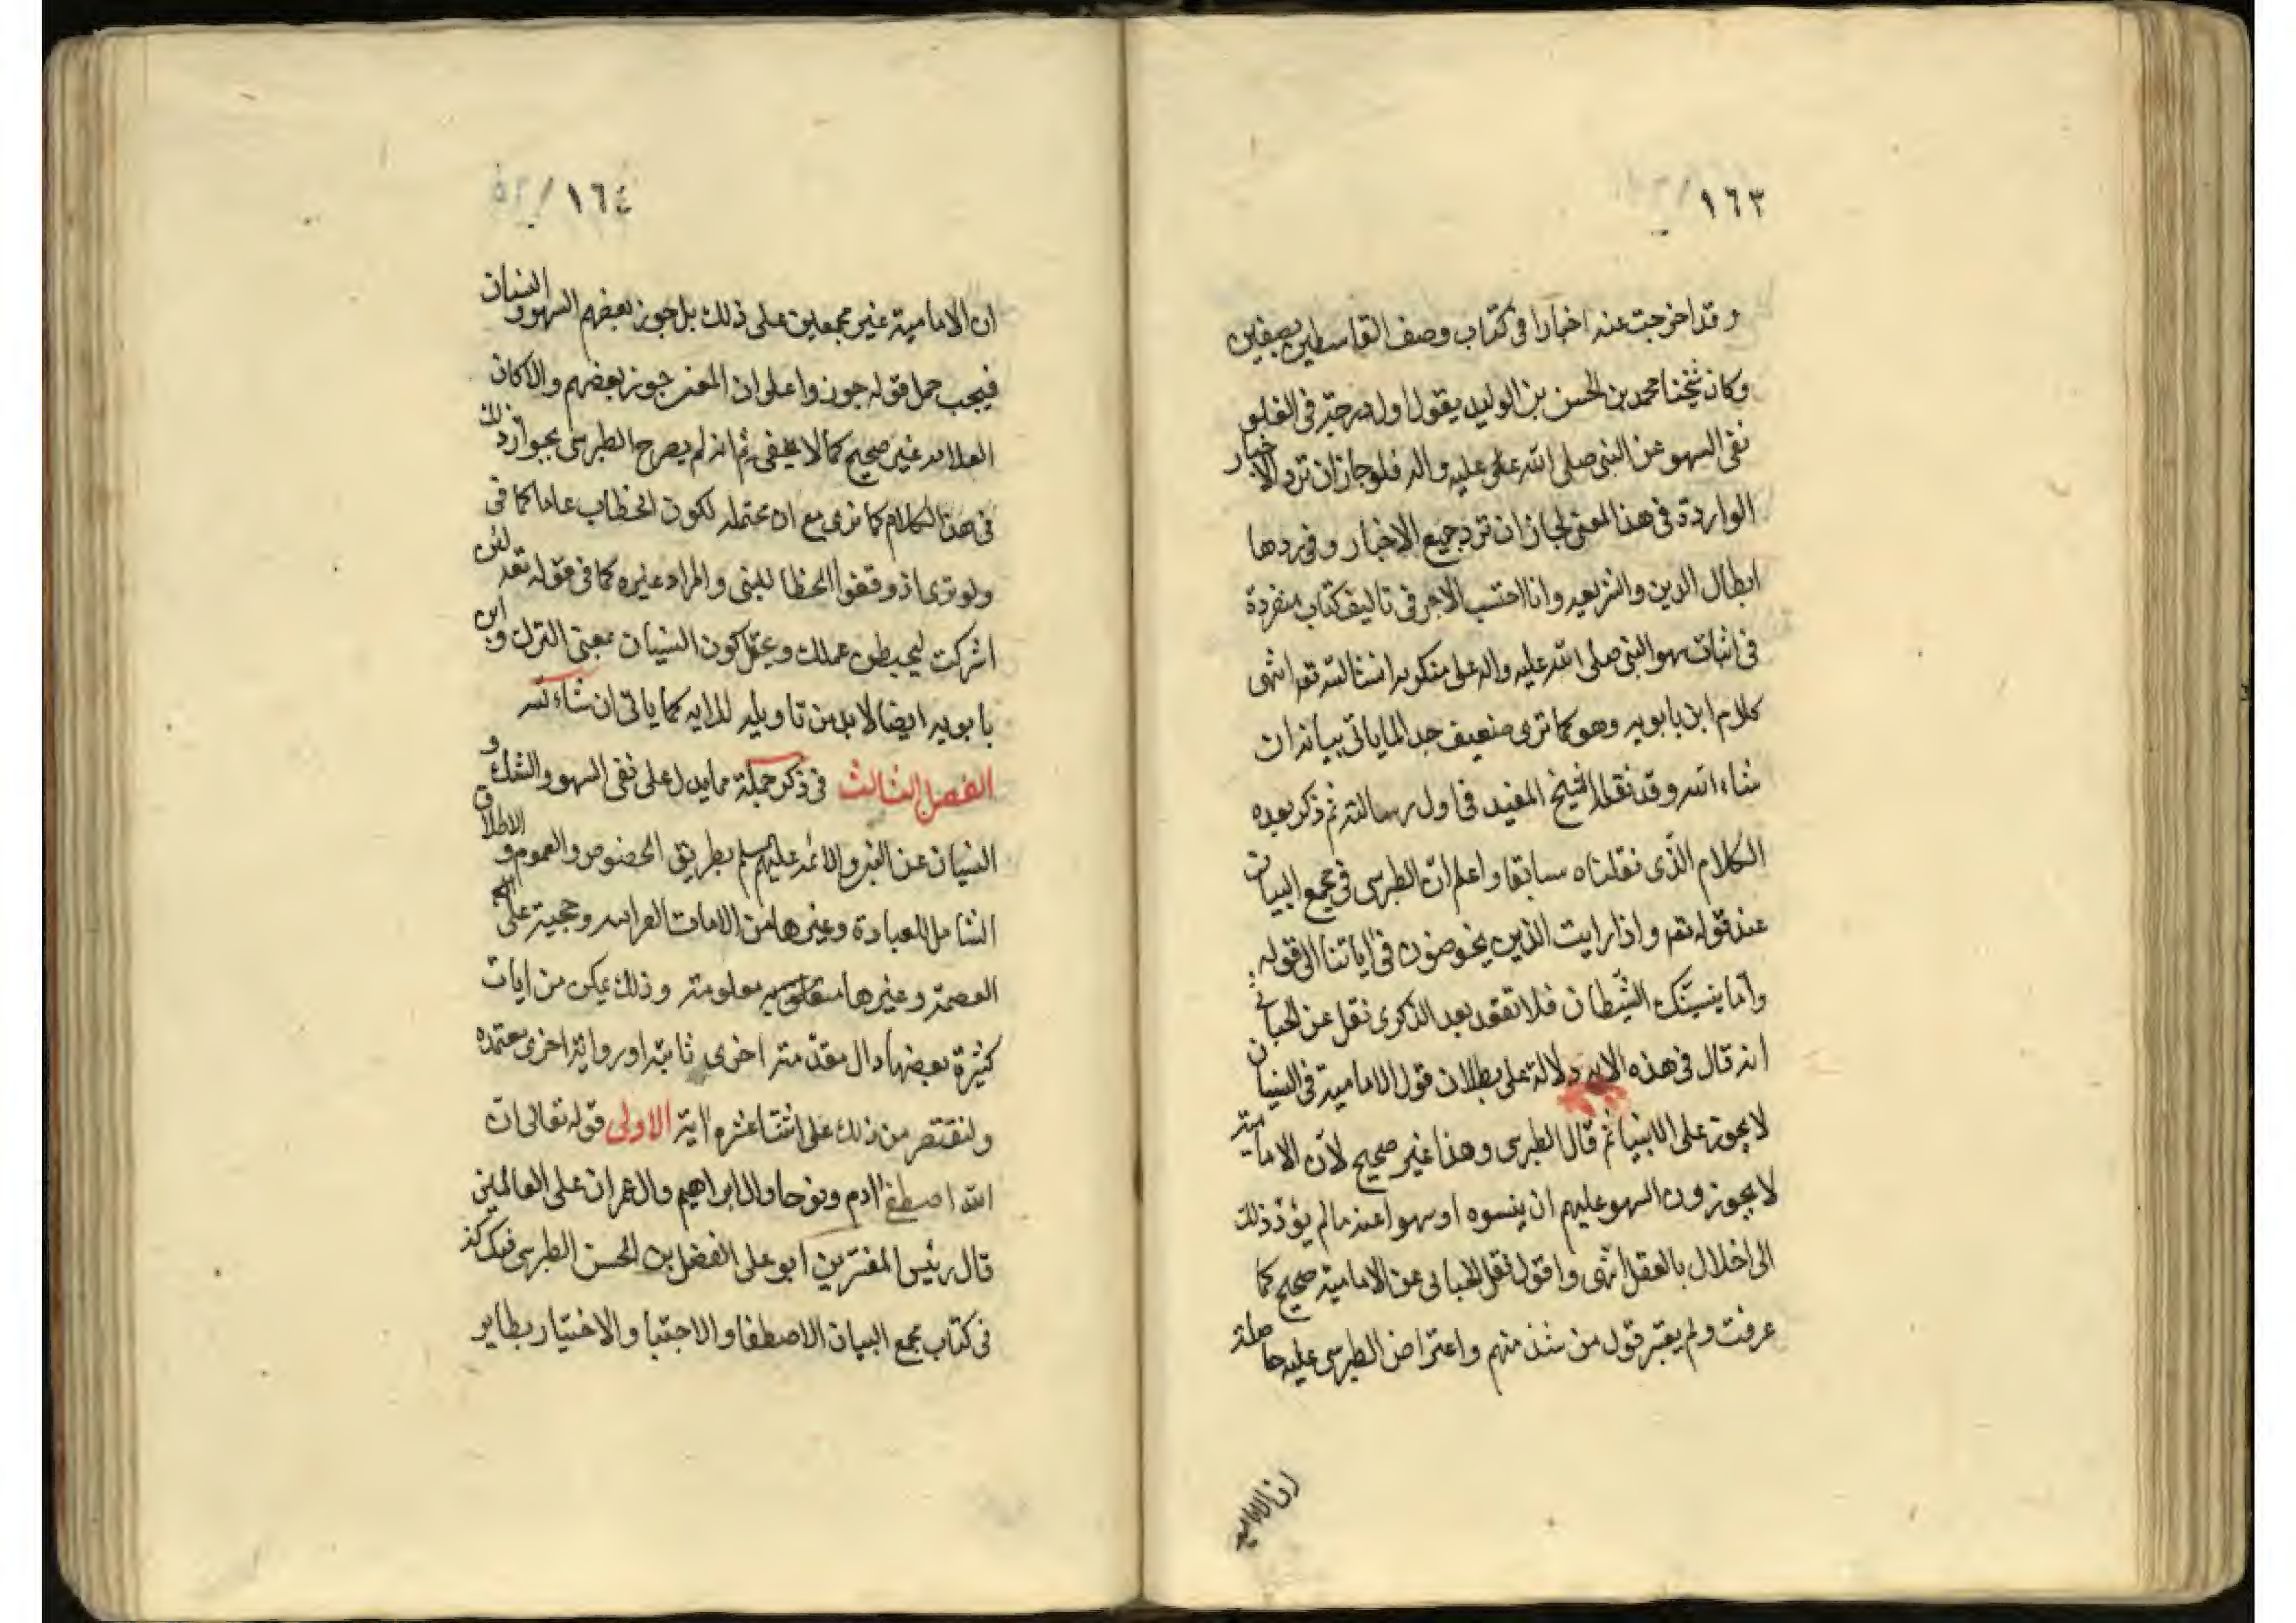 ١٦٣
وقد اخرجت عنه اخبارا فى كتاب وصف القاسطين بصفين
وكان شيخنا محمد بن الحسن بن الوليد يقول اول درجة فى الغلو
نفى السهو عن النبى صلى الله عليه واله فلو جاز ان ترد الاخبار
الواردة فى هذا المعنى لجاز ان ترد جميع الاخبار وفى ردها
ابطال الدين والشريعه وانا احتسب الاجر فى تاليف كتاب منفردة
فى اثبات سهو النبى صلى الله عليه واله على منكريه انشا الله تعه انتهى
كلام ابن بابويه وهو كما ترى ضعيف جدا لما ياتى بيانه ان
شاء الله وقد نقله الشيخ المفيد فى اول رسالته ثم ذكر بعده
الكلام الذى نقلناه سابقا واعلم ان الطبرسى فى مجمع البيان
عند قوله تعه واذا رايت الذين يخوضون فى اياتنا الى قوله
واما ينسينك الشيطان فلا تقعد بعد الذكرى نقل عن الجبائى
انه قال فى هذه الايه دلالة على بطلان قول الامامية فى النسيان
لا يجوز على الانبيا ثم قال الطبرسى وهذا غير صحيح لان الامامية
لا يجوزون السهو عليهم ان ينسوه او سهوا عنه ما لم يؤد ذلك
الى اخلال بالعقل انتهى واقول نقل الجبائى عن الامامية صحيح كما
عرفت ولم يعتبر قول من شذ منهم واعتراض الطبرسى عليه حاصله
ان الاماميه
١٦٤
ان الامامية غير مجمعين على ذلك بل جوز بعضهم السهو والنسيان
فيجب حمل قوله جوزوا على ان المعنى جوز بعضهم والا كان
الكلام غير صحيح كما لا يخفى ثم انه لم يصرح الطبرسى بجواز ذلك
فى هذا الكلام كما ترى مع ان محتمله لكون الخطاب عاما كما فى
ولو ترى اذ وقفوا الخطا للنبى والمراد غيره كما فى قوله تعه لئن
اشركت ليحبطن عملك ويحتمل كون النسيان بمعنى الترك وابن
بابويه ايضا لابد من تاويله للايه كما ياتى ان شاء الله
الفصل الثالث فى ذكر جملة مما يدل على نفى السهو والشك و
النسيان عن النبى والائمه عليهم السلم بطريق الخصوص والعموم والاطلاق
الشامل للعبادة وغيرها من الايات القرانيه وحجية على
العصمة وغيرها معلومة وذلك يمكن من ايات
كثيرة بعضها دال مقدمته اخرى ثابتة او رواية اخرى معتمده
ولنقتصر من ذلك على اثنتا عشره اية الاولى قوله تعالى ان
الله اصطفى ادم ونوحا وال ابراهيم وال عمران على العالمين
قال رئيس المفسرين ابو على الفضل بن الحسن الطبرسى
فى كتاب مجمع البيان الاصطفا والاجتبا والاختيار نظاير